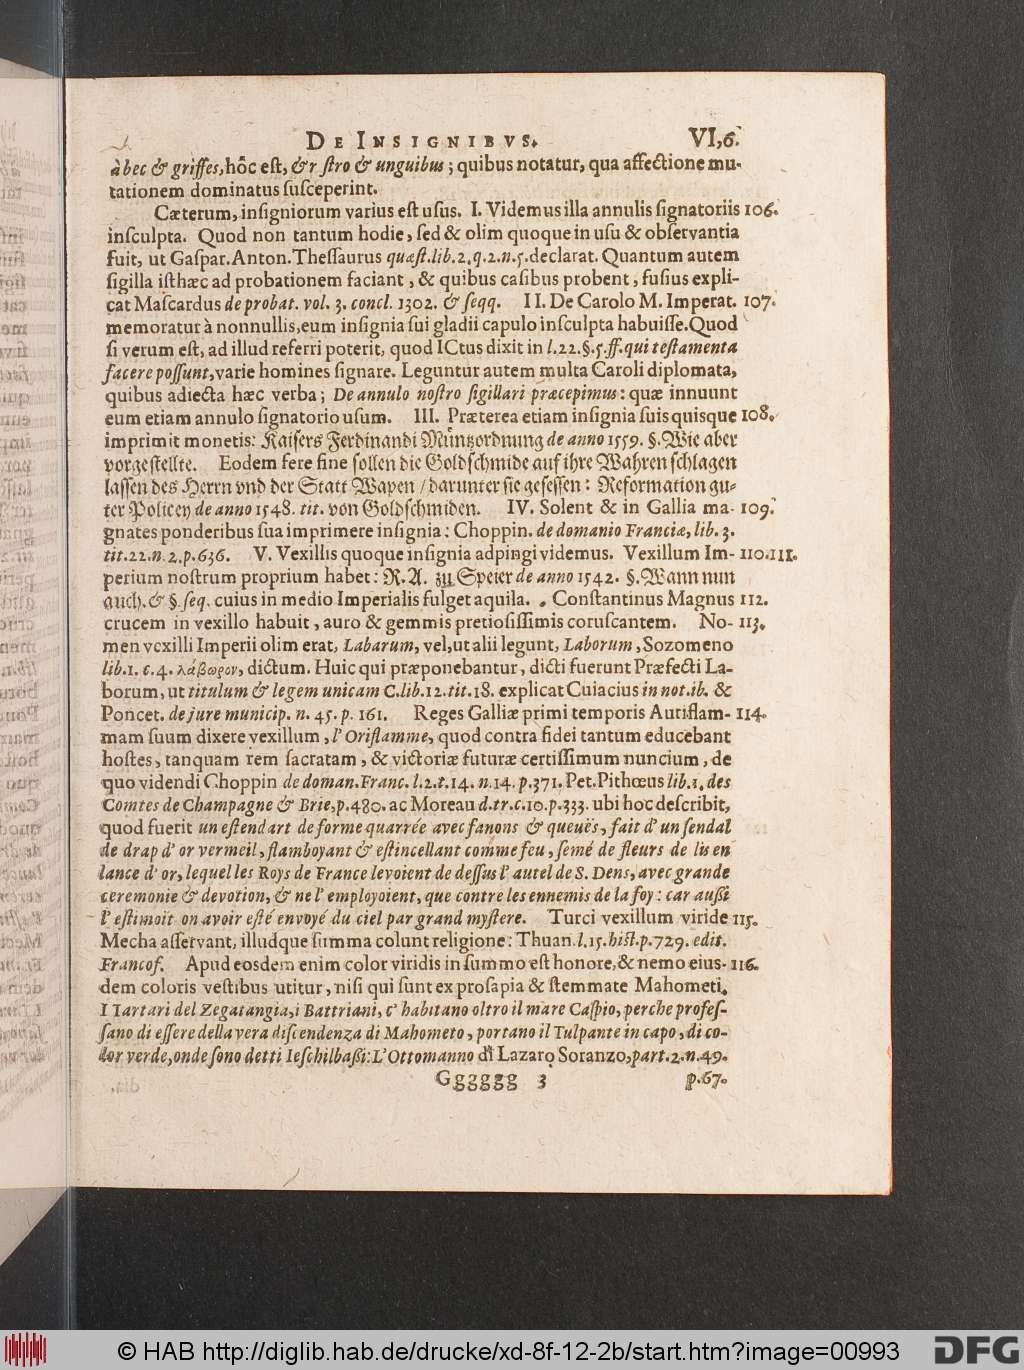 DE INSIGNIBVS. VI,6.
à bec & griffes, hôc est, & r stro & unguibus; quibus notatur, qua affectione mu-
tationem dominatus susceperint.
Cæterum, insigniorum varius est usus. I. Videmus illa annulis signatoriis 106.
insculpta. Quod non tantum hodie, sed & olim quoque in usu & observantia
fuit, ut Gaspar. Anton. Thessaurus quæst. lib. 2. q. 2. n. 5. declarat. Quantum autem
sigilla isthæc ad probationem faciant, & quibus casibus probent, fusius expli-
cat Mascardus de probat. vol. 3. concl. 1302. & seqq. II. De Carolo M. Imperat. 107.
memoratur à nonnullis, eum insignia sui gladii capulo insculpta habuisse. Quod
si verum est, ad illud referri poterit, quod ICtus dixit in l. 22. §. 5. ff. qui testamenta
facere possunt, varie homines signare. Leguntur autem multa Caroli diplomata,
quibus adiecta hæc verba; De annulo nostro sigillari præcepimus: quæ innuunt
eum etiam annulo signatorio usum. III. Præterea etiam insignia suis quisque 108.
imprimit monetis: Kaisers Ferdinandi Müntzordnung de anno 1559. §. Wie aber
vorgestellte. Eodem fere fine sollen die Goldschmide auf ihre Wahren schlagen
lassen des Herrn vnd der Statt Wapen / darunter sie gesessen: Reformation gu-
ter Policey de anno 1548. tit. von Goldschmiden. IV. Solent & in Gallia ma- 109.
gnates ponderibus sua imprimere insignia: Choppin. de domanio Franciæ, lib. 3.
tit. 22. n. 2. p. 636. V. Vexillis quoque insignia adpingi videmus. Vexillum Im- 110. 111.
perium nostrum proprium habet: R. A. zu Speier de anno 1542. §. Wann nun
auch. & §. seq. cuius in medio Imperialis fulget aquila. Constantinus Magnus 112.
crucem in vexillo habuit, auro & gemmis pretiosissimis coruscantem. No- 113.
men vexilli Imperii olim erat, Labarum, vel, ut alii legunt, Laborum, Sozomeno
lib. 1. c. 4. λάβωρον, dictum. Huic qui præponebantur, dicti fuerunt Præfecti La-
borum, ut titulum & legem unicam C. lib. 12. tit. 18. explicat Cuiacius in not. ib. &
Poncet. de jure municip. n. 45. p. 161. Reges Galliæ primi temporis Auriflam- 114.
mam suum dixere vexillum, l'Oriflamme, quod contra fidei tantum educebant
hostes, tanquam rem sacratam, & victoriæ futuræ certissimum nuncium, de
quo videndi Choppin de doman. Franc. l. 2. t. 14. n. 14. p. 371. Pet. Pithœus lib. 1. des
Comtes de Champagne & Brie, p. 480. ac Moreau d. tr. c. 10. p. 333. ubi hoc describit,
quod fuerit un estendart de forme quarrée avec fanons & queuës, fait d'un sendal
de drap d'or vermeil, flamboyant & estincellant comme feu, semé de fleurs de lis en
lance d'or, lequel les Roys de France levoient de dessus l'autel de S. Dens, avec grande
ceremonie & devotion, & ne l'employoient, que contre les ennemis de la foy: car aussi
l'estimoit on avoir esté envoyé du ciel par grand mystere. Turci vexillum viride 115.
Mecha asservant, illudque summa colunt religione: Thuan. l. 15. hist. p. 729. edit.
Francof. Apud eosdem enim color viridis in summo est honore, & nemo eius- 116.
dem coloris vestibus utitur, nisi qui sunt ex prosapia & stemmate Mahometi.
I Tartari del Zegatangia, i Battriani, c'habitano oltro il mare Caspio, perche profes-
sano di essere della vera discendenza di Mahometo, portano il Tulpante in capo, di co-
lor verde, onde sono detti Ieschilbassi: L'Ottomanno di Lazaro Soranzo, part. 2. n. 49.
Gggggg 3 p. 67.
© HAB http://diglib.hab.de/drucke/xd-8f-12-2b/start.htm?image=00993
DFG